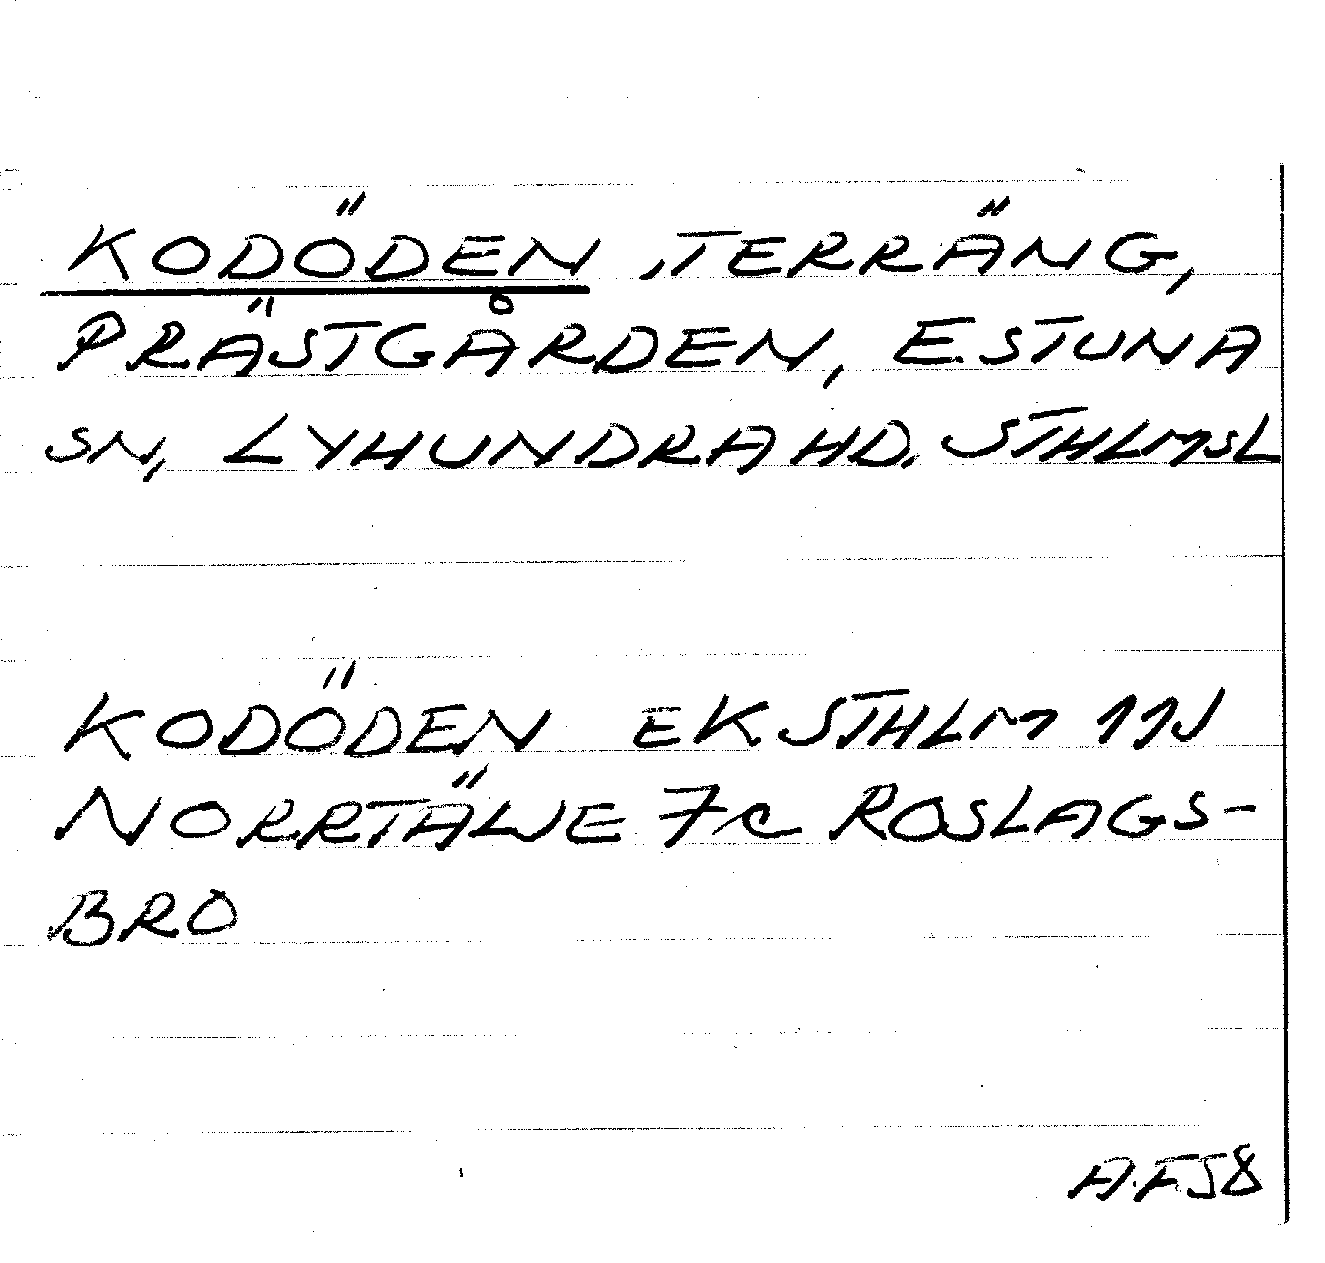 KODÖDEN, TERRÄNG,
PRÄSTGÅRDEN, ESTUNA
SN, LYHUNDRA HD. STHLMSL
KODÖDEN EK STHLM 11J
NORRTÄLJE 7c ROSLAGS-
BRO
A.F58